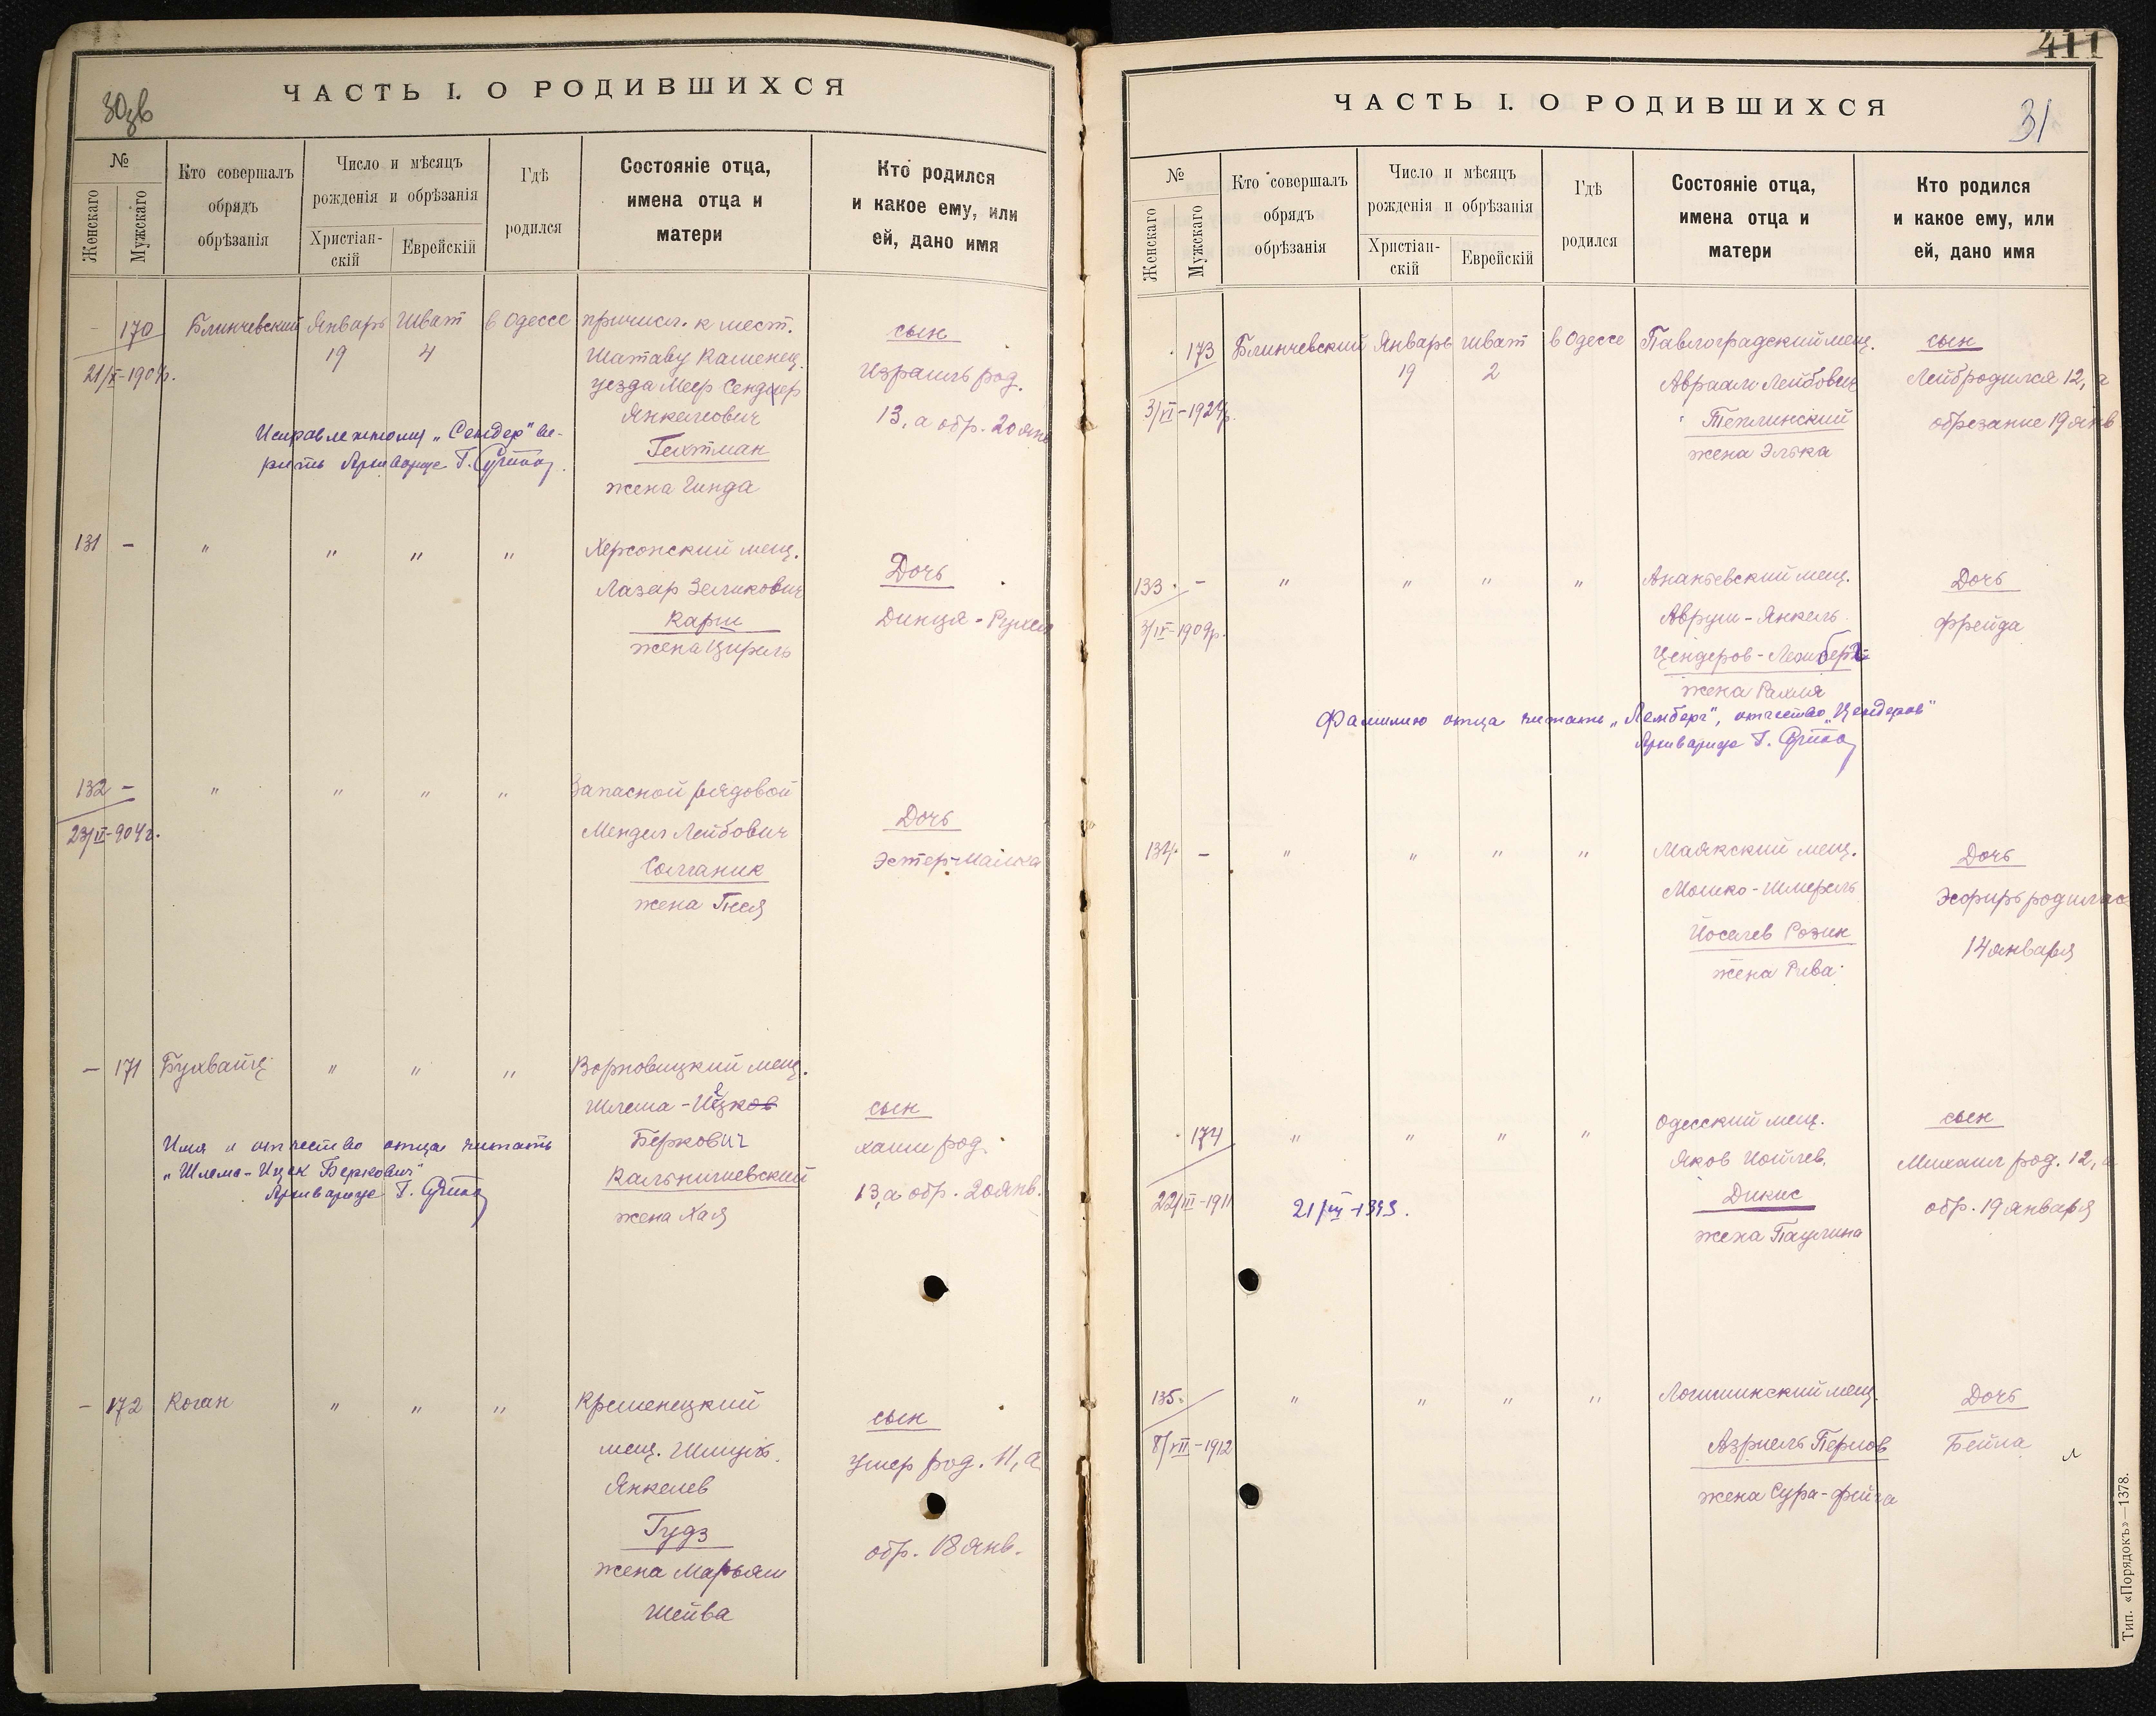 ЧАСТЬ I. О РОДИВШИХСЯ
№
Женскаго
Мужскаго
Кто совершалъ
обрядъ
обрѣзанія
Число и мѣсяцъ
рожденія и обрѣзанія
Христіан-
скій
Еврейскій
Гдѣ
родился
Состояніе отца,
имена отца и
матери
Кто родился
и какое ему, или
ей, дано имя
170 Блинчевский Январь Шват в Одессе причисл. к мест.
19 4 Шатаву Каменец.
уезда Меер Сендер
Янкелович
Гехтман
жена Гинда
сын
Израиль род.
13, а обр. 20 янв
Исправленному „Сендер" ве-
рить Архивариус Г.
131 - " " " " Херсонский мещ.
Лазар Зеликович
Карш
жена Цирель
Дочь
Динця - Рухля
132 - " " " " Запасной рядовой
Мендел Лейбович
Солганик
жена Гнея
23/II-904г.
Дочь
Эстер-Малка
- 171 Бухвайц " " " мещ.
Шлема - Ицков
Беркович
Кальничевский
жена Хая
сын
хаим род.
13, а обр. 20 янв.
Имя и отчество отца читать
"Шлема-Ицек Беркович"
Архивариус Г.
- 172 Коган " " " Кременецкий
мещ. Шмуль
Янкелев
Гудз
жена Марьям
Шейва
сын
Ушер род. 11, а
обр. 18 янв.
411
ЧАСТЬ I. О РОДИВШИХСЯ
31
№
Женскаго
Мужскаго
Кто совершалъ
обрядъ
обрѣзанія
Число и мѣсяцъ
рожденія и обрѣзанія
Христіан-
скій
Еврейскій
Гдѣ
родился
Состояніе отца,
имена отца и
матери
Кто родился
и какое ему, или
ей, дано имя
173 Блинчевский Январь шват в Одессе Павлоградский мещ.
19 2 Авраам Лейбович
Теплинский
жена Элька
3/XI-192
сын
Лейб родился 12, а
обрезание 19 янв
133 - " " " " Ананьевский мещ.
Аврум - Янкель
Цендеров - Лемберг
жена Рахля
3/IX-1909г.
Дочь
Фрейда
Фамилию отца читать „Лемберг", отчество „Цендеров"
Архивариус Г.
134 - " " " " Маякский мещ.
Мошко - Шмериль
Йоселев Розин
жена Рива
Дочь
Эсфирь родилас
14 января
174 " " " " Одесский мещ.
Яков Йойлев,
Дикис
жена Паулина
22/III-1911
сын
Михаил род. 12, а
обр. 19 января
135. " " " " Логишинский мещ.
Азриель Перлов
жена Сура - Фейга
8/VII-1912
Дочь
Бейла
Тип. «Порядокъ»—1378.